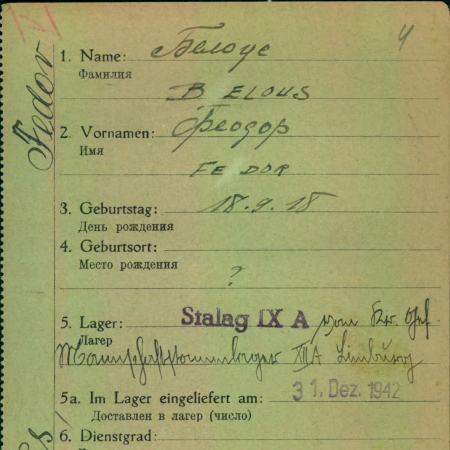 4
Fedor
1. Name: Белоус
Фамилия
BELOUS
2. Vornamen: Феодор
Имя
FEODOR
3. Geburtstag: 18.9.18
День рождения
4. Geburtsort:
Место рождения
?
5. Lager: Stalag IX A vom Kr. Gef.
Лагер
Mannschaftsstammlager XII A Limburg
5a. Im Lager eingeliefert am: 31. Dez. 1942
Доставлен в лагер (число)
6. Dienstgrad: